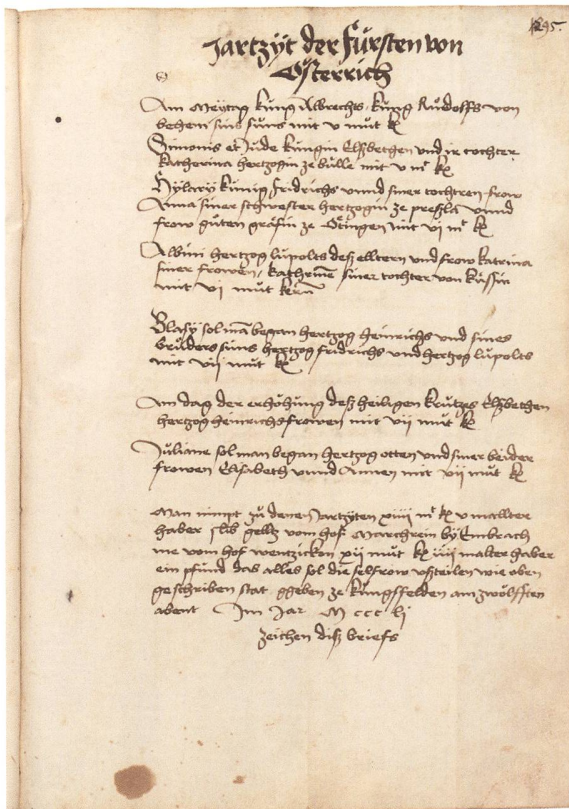 295.
Jartzyt der Fürsten von
Österrich
Am Meÿtag küng Albrechts, küng Růdolffs von
behem sins suns mit v mut k
Simonis et Jude küngin Elsbethen und ir tochter
Katherina hertzogin ze bulle mit v mt k
Hÿlarÿ künig fridrichs vnnd siner tochtren frow
Anna siner schwester hertzogin ze preßla vnnd
frow gůten gräfin ze Ötingen mit vi mt k
Albini hertzog lüpolts deß elltern und frow katrina
siner frowen, katherinē siner tochter von küssin
mit vi mut kernn
Blasÿ sol mā began hertzog heinrichs und sines
brůders suns hertzog fridrichs und hertzog lüpolts
mit vii mut k
Am dag der erhöhung deß heiligen krützes Elsbethen
hertzog heinrichs frowen mit vii mut k
Juliane sol man began hertzog otten und siner beider
frowen Elisabeth vnnd Annen mit vii mut k
Man nimpt zů denen Jartzyten xiiii mt k v mallter
haber lib gelltz vom hof Marchrein bÿ Embrach
me vom hof wentzickon xii mut k iiii malter haber
ein pfund das alles sol die selfrow vßteilen wie oben
geschriben stat ggeben ze küngsfelden am zwölfften
abent Im Jar M ccc lj
zeichen diß briefs